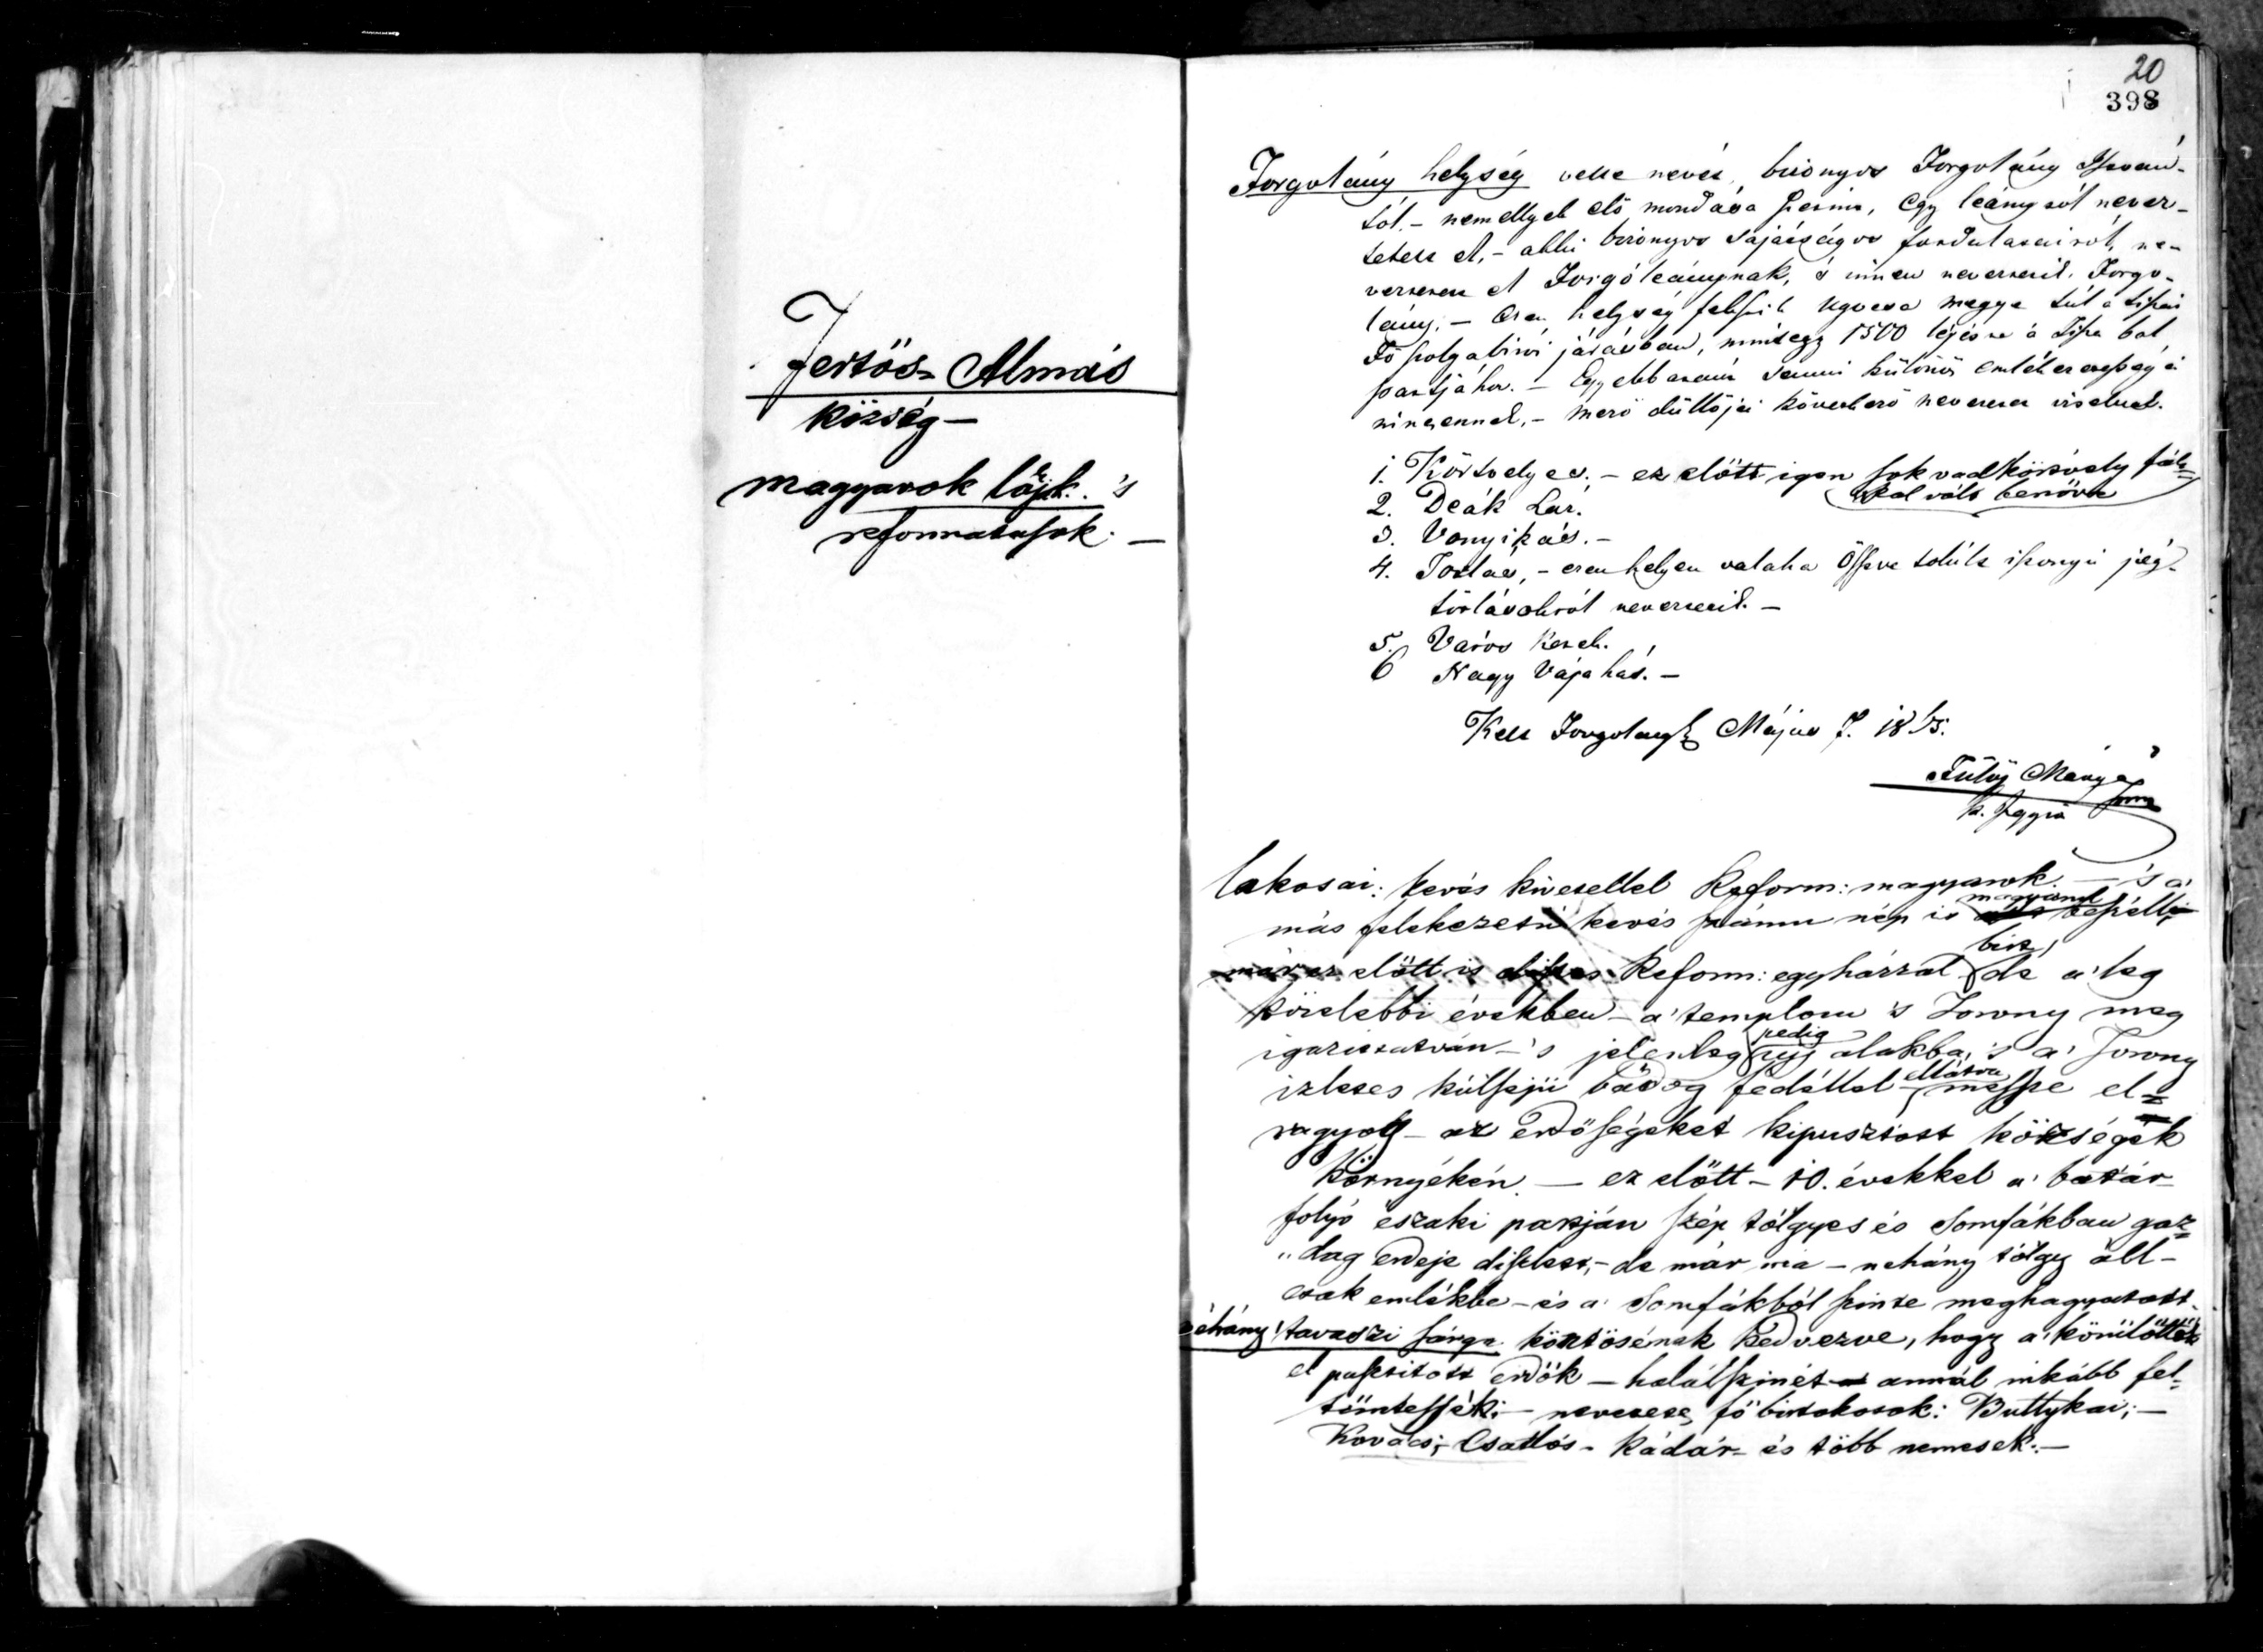 Fertös-Almás
község –
magyarok lakják. 's
reformatusok. –
20
398
Forgolány helység vette nevét, bizonyos Forgolány Istvántól,
– nemellyek elő mondása szerint, egy leánytól neveztetett
el, – a ki bizonyos sajátságos fordulásairól, neveztetett
el Forgóleánynak, 's innen neveztetik Forgolány.
– Ezen helység fekszik Ugocsa megye túl a tiszai
Fő szolgabirói járásban, mintegy 1500 lépésre a Tisza bal
partjához. – Egyebb aránt semmi különös emlékezetessége
nincsennek, – merő dűllőjei következő nevezetet viselnek.
1. Körtvelyes. – ez előtt igen sok vadkörtvely fák-
kal vólt benőve
2. Deák Laz.
3. Vonyikás. –
4. Torlas, – ezen helyen valaha össze tolúlt iszonyú jég-
torlásokról neveztetik. –
5. Város Kerek.
6 Nagy Vájahát. –
Kelt Forgolányb Május 7.
Fülöp
k. Jegyző
lakosai: kevés kivetellel Reform: magyarok. – 's a'
más felekezetü kevés számu nép is magyarul beszéll;
már ez előtt is díszes Reform: egyházzal birt, de a' leg
közelebbi években – a' templom 's Torony meg
igazittatván – 's jelenleg pedig uj alakba, 's a' Torony
izleses külsejü bádog fedéllel ellátva messze el-
ragyog – az erdőségeket kipusztott községek
Környékén. – ez előtt – 10. évekkel a' batár
folyó északi partján szép tölgyes és somfákban gaz-
"dag erdeje diszlett, – de már ma – nehány tölgy áll –
csak emlékbe – és a' Somfákból szinte meghagyatott
néhány! tavaszi sárga köntösének kedvezve, hogy a' körülöttök
el pusztitott erdők – halálszinét annál inkább fel-
tüntessék; – nevezetes fő birtokosok: Buttykai; –
Kovács; Csatlós – Kádár – és több nemesek. –